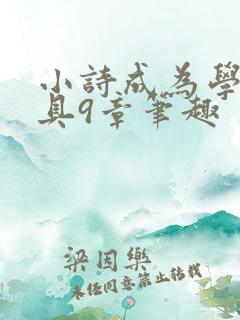 小詩成為學
具9章筆趣
梁因樂
未经同意禁止转载